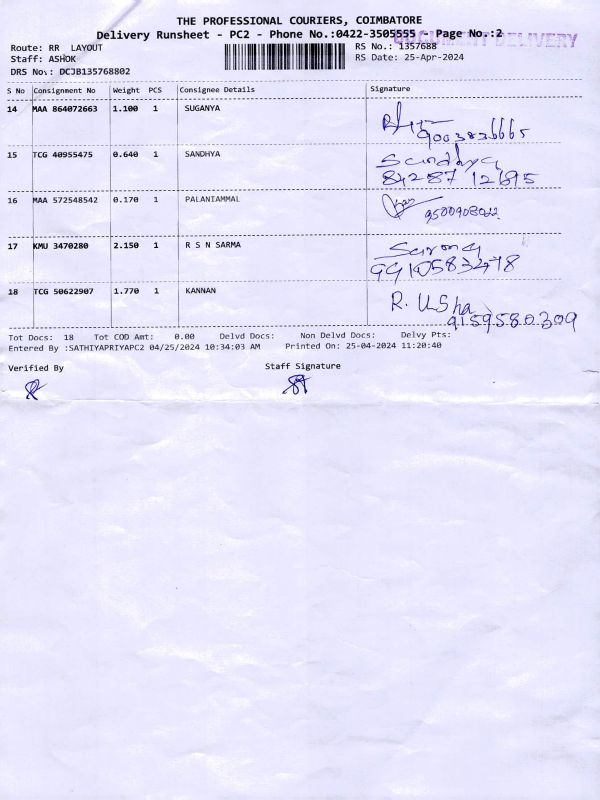 THE PROFESSIONAL COURIERS, COIMBATORE
Delivery Runsheet - PC2 - Phone No.:0422-3505555 Page No.:2
DOCUMENT DELIVERY
Route: RR LAYOUT
RS No.: 1357688
Staff: ASHOK
RS Date: 25-Apr-2024
DRS No.: DCJB135768802
S No Consignment No Weight PCS Consignee Details Signature
14 MAA 864072663 1.100 1 SUGANYA
9003836665
15 TCG 40955475 0.640 1 SANDHYA
Sandhya
84287 12695
16 MAA 572548542 0.170 1 PALANIAMMAL
17 KMU 3470280 2.150 1 R S N SARMA
18 TCG 50622907 1.770 1 KANNAN
R. Usha
9159580309
Tot Docs: 18 Tot COD Amt: 0.00 Delvd Docs: Non Delvd Docs: Delvy Pts:
Entered By :SATHIYAPRIYAPC2 04/25/2024 10:34:03 AM Printed On: 25-04-2024 11:20:40
Verified By Staff Signature